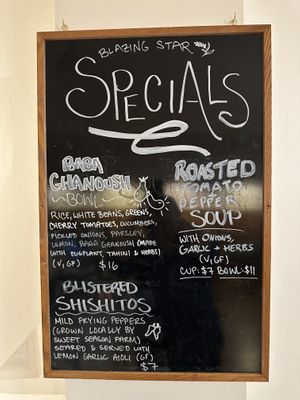 BLAZING STAR
SPECIALS
BABA
GHANOUSH
BOWL
RICE, WHITE BEANS, GREENS,
CHERRY TOMATOES, CUCUMBERS,
PICKLED ONIONS, PARSLEY,
LEMON, BABA GANOUSH (MADE
WITH EGGPLANT, TAHINI & HERBS)
(V, GF) $16
ROASTED
TOMATO
PEPPER
SOUP
WITH ONIONS,
GARLIC + HERBS
(V, GF)
CUP: $7 BOWL: $11
BLISTERED
SHISHITOS
MILD FRYING PEPPERS
(GROWN LOCALLY BY
SWEET SEASON FARM)
SEARED & SERVED WITH
LEMON GARLIC AIOLI (GF)
$7